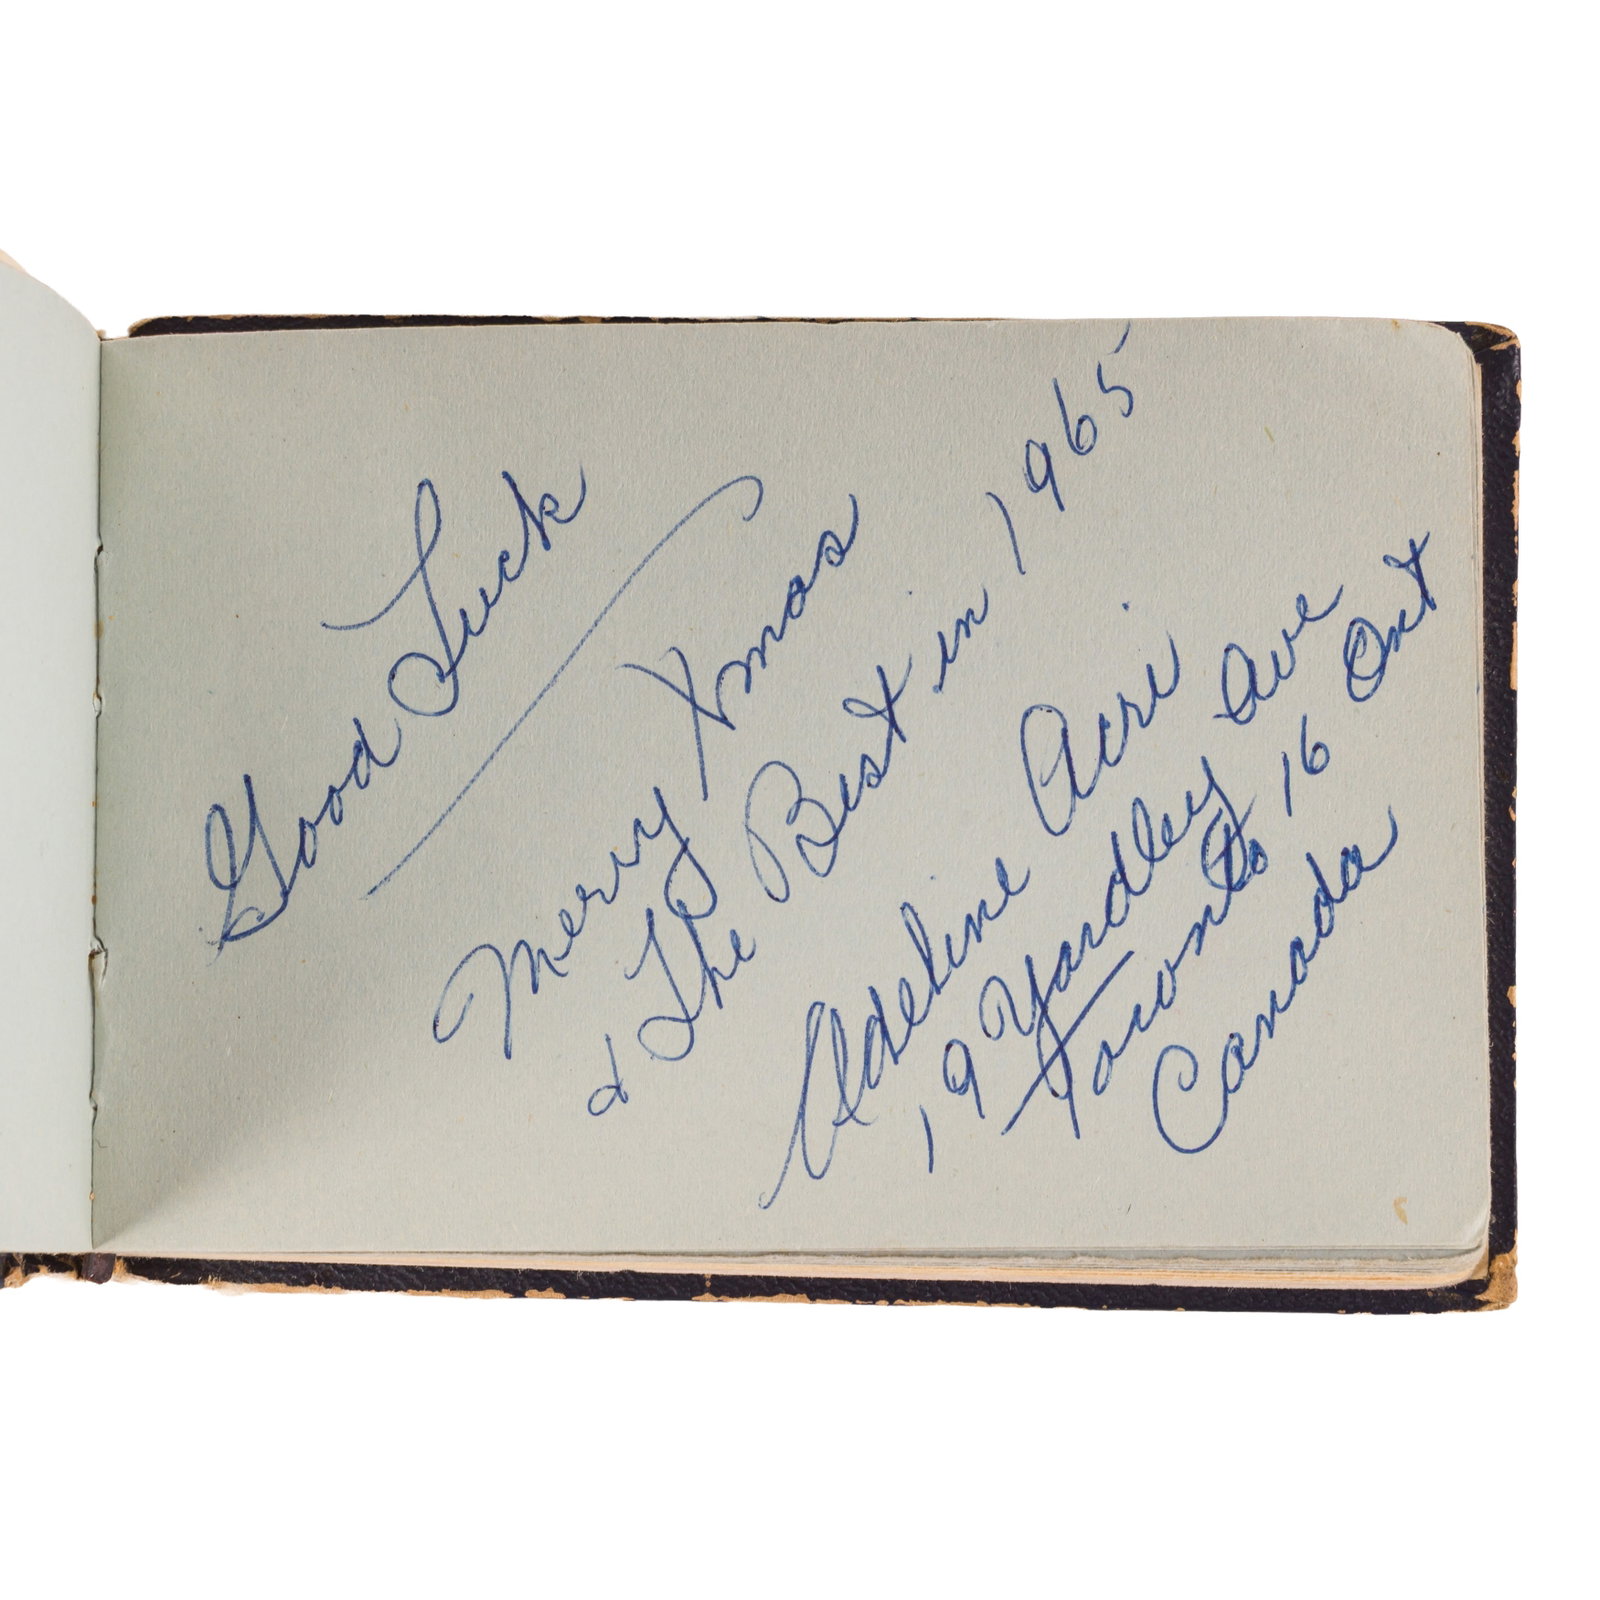 Good Luck
Merry Xmas
& The Best in 1965
Adeline Acri
19 Yardley Ave
Toronto 16 Ont
Canada